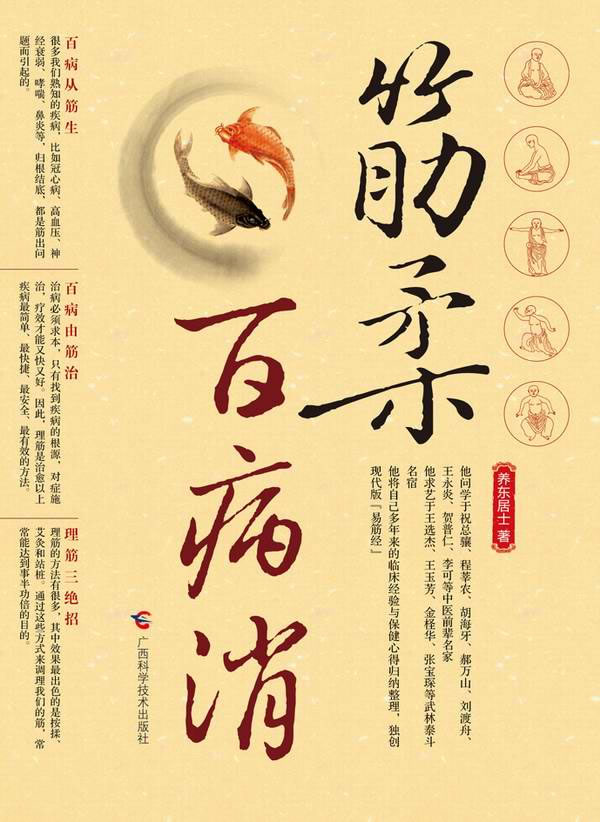 筋柔
百病消
养东居士 著
他问学于祝总骧、程莘农、胡海牙、郝万山、刘渡舟、
王永炎、贺普仁、李可等中医前辈名家
他求艺于王选杰、王玉芳、金桎华、张宝琛等武林泰斗
名宿
他将自己多年来的临床经验与保健心得归纳整理，独创
现代版『易筋经』
百病从筋生
很多我们熟知的疾病，比如冠心病、高血压、神
经衰弱、哮喘、鼻炎等，归根结底，都是筋出问
题而引起的。
百病由筋治
治病必须求本，只有找到疾病的根源，对症施
治，疗效才能又快又好。因此，理筋是治愈以上
疾病最简单、最快捷、最安全、最有效的方法。
理筋三绝招
理筋的方法有很多，其中效果最出色的是按揉、
艾灸和站桩。通过这些方式来调理我们的筋，常
常能达到事半功倍的目的。
广西科学技术出版社